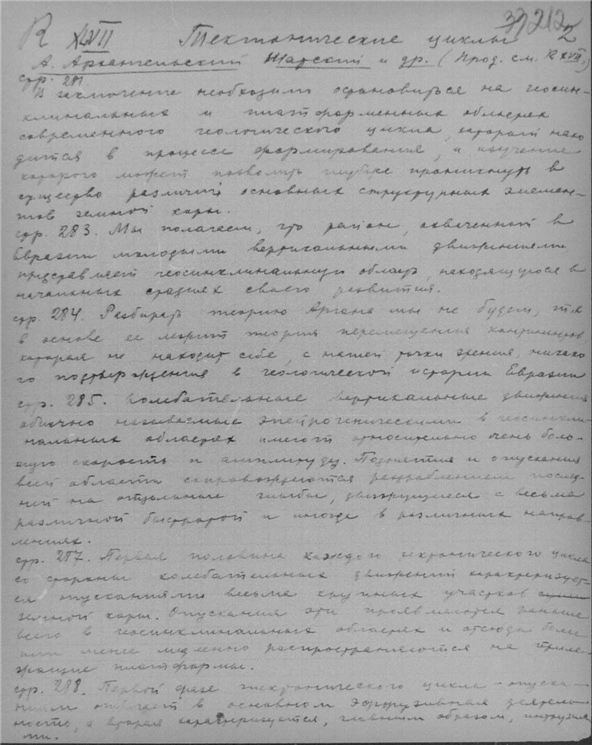 R XLVII Тектонические циклы 2
А. Архангельский Шатский и др. (Прод. см. R XVII)
стр. 281.
В заключение необходимо остановиться на геосин-
клинальных и платформенных областях
современного геологического цикла, который нахо
дится в процессе формирования, и изучение
которого может позволить глубже проникнуть в
существо различий основных структурных элемен-
тов земной коры.
стр. 283. Мы полагаем, что район, охваченный в
Евразии молодыми вертикальными движениями
представляет геосинклинальную область, находящуюся в
начальных стадиях своего развития.
стр. 284. Разбирать теорию Аргана мы не будем, т.к.
в основе ее лежит теория перемещения континентов
которая не находит себе, с нашей точки зрения, никако
го подтверждения в геологической истории Евразии
стр. 285. Колебательные вертикальные движения
обычно называемые эпейрогеническими в геосинкли-
нальных областях имеют относительно очень боль-
шую скорость и амплитуду. Поднятия и опускания
всей области сопровождаются раздроблением послед-
ней на отдельные глыбы, движущиеся с весьма
различной быстротой и иногда в различных направ-
лениях.
стр. 287. Первая половина каждого тектонического цикла
со стороны колебательных движений характеризует-
ся опусканиями весьма крупных участков
земной коры. Опускания эти проявляются раньше
всего в геосинклинальных областях и отсюда более
или менее медленно распространяются на приле-
жащие платформы.
стр. 288. Первой фазе тектонического цикла - опуска-
ниям отвечает в основном эффузивная деятель-
ность, а вторая характеризуется, главным образом, интрузия
ми.